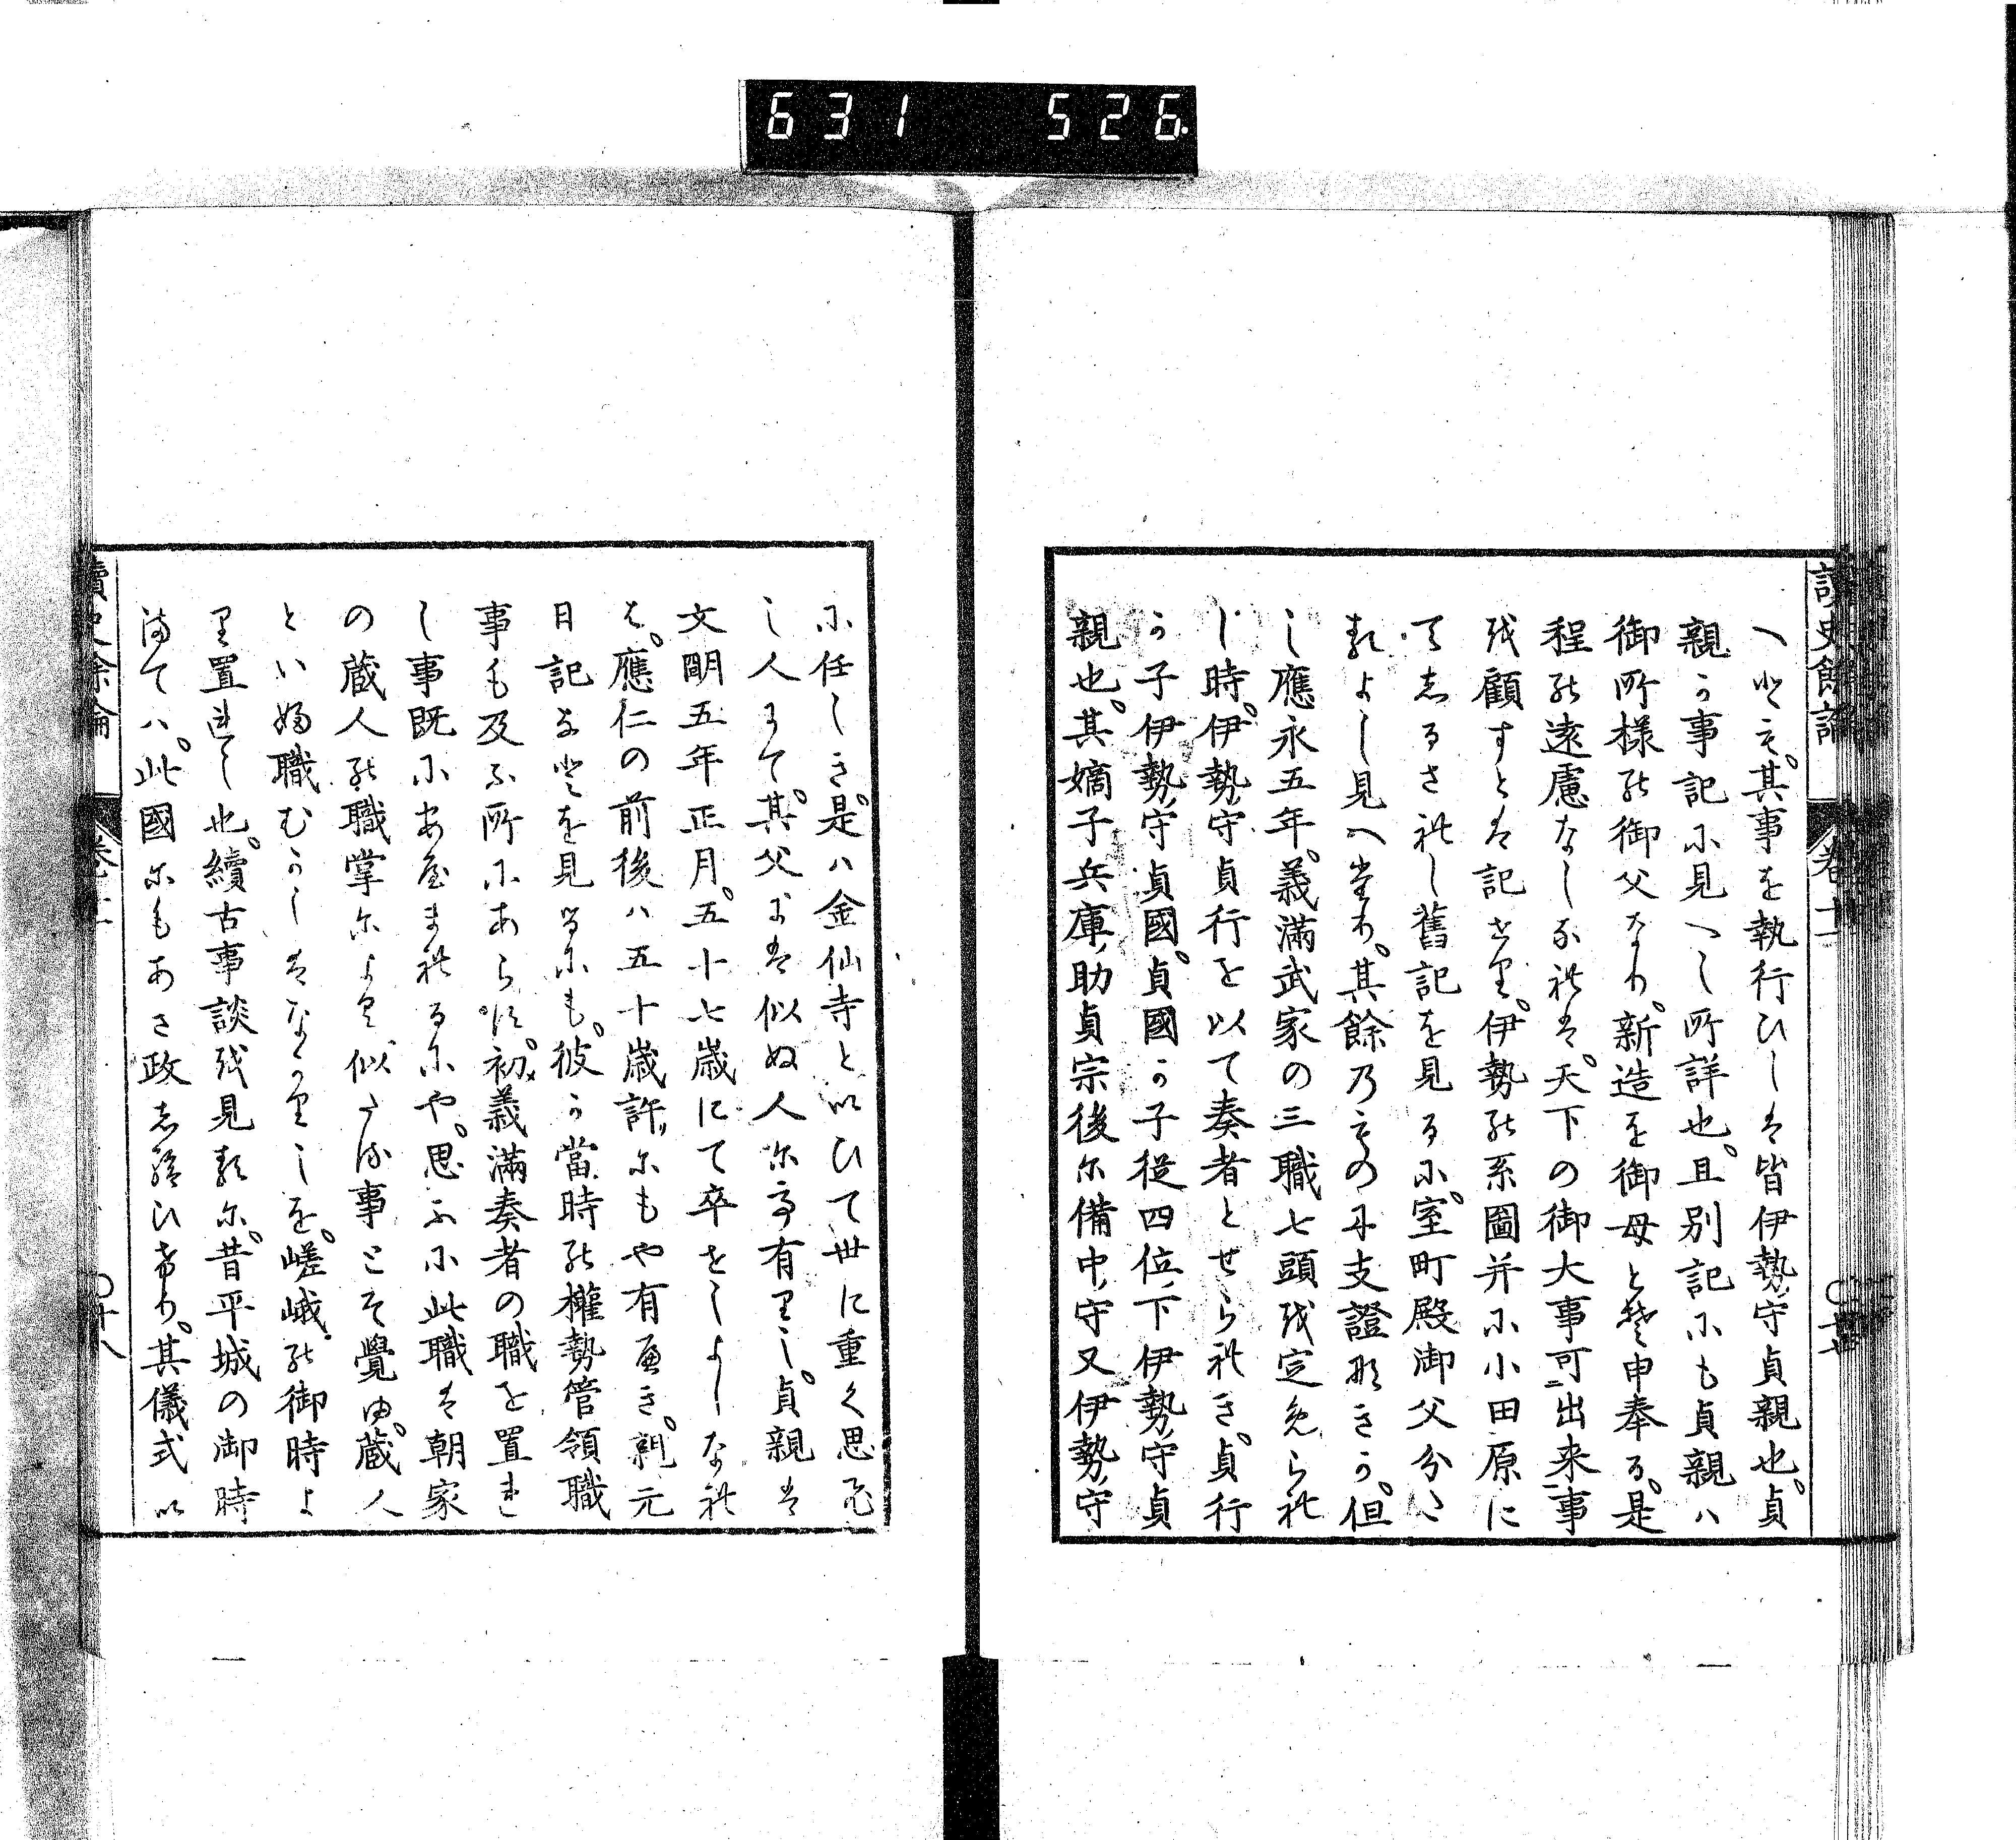 631 526
讀史餘論 卷十一
へとも。其事を執行ひしは皆伊勢守貞親也。貞
親か事記に見へし所詳也。且別記にも貞親ハ
御所様の御父なり。新造を御母とそ申奉る。是
程の遠慮なしなれは。天下の御大事可出来事
を顧すとは記せり。伊勢の系圖并に小田原に
てしるされし舊記を見るに。室町殿御父分と
あるよし見へたり。其餘乃ものは支證なきか。但
し應永五年。義滿武家の三職七頭を定められ
し時。伊勢守貞行を以て奏者とせられき。貞行
か子伊勢守貞國。貞國か子従四位下伊勢守貞
親也。其嫡子兵庫助貞宗後に備中守又伊勢守
に任しき。是ハ金仙寺といひて世に重く思は
し人にて。其父には似ぬ人にて有りし。貞親は
文明五年正月。五十七歳にて卒せしよしなれ
は。應仁の前後ハ五十歳許にもや有へき。親元
日記なとを見るにも。彼か當時の權勢管領職
事も及ふ所にあらす。初義滿奏者の職を置れ
し事既にあやまれるにや。思ふに此職は朝家
の蔵人の職掌によく似たる事とそ覺ゆ。蔵人
といふ職むかしはなかりしを。嵯峨の御時よ
り置れし也。續古事談を見るに。昔平城の御時
まては。此國にもあさ政し給ひけり。其儀式い
讀史餘論 〇十八